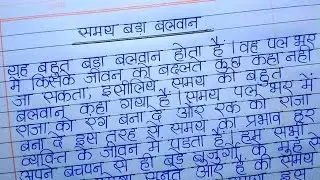 समय बड़ा बलवान
यह बहुत बड़ा बलवान होता है। वह पल भर
में किसके जीवन को बदलत कुछ कहा नही
जा सकता, इसीलिये समय को बहुत
बलवान कहा गया है। समय पल भर में
राजा को रंग बना दे और रंक को राजा
बना दे इस तरह से समय का प्रभाव हर
व्यक्ति के जीवन में पड़ता है। हम सभी
अपने बचपने से ही बड़े बुजुर्गो के मुह से
सुनते आर हे की समय